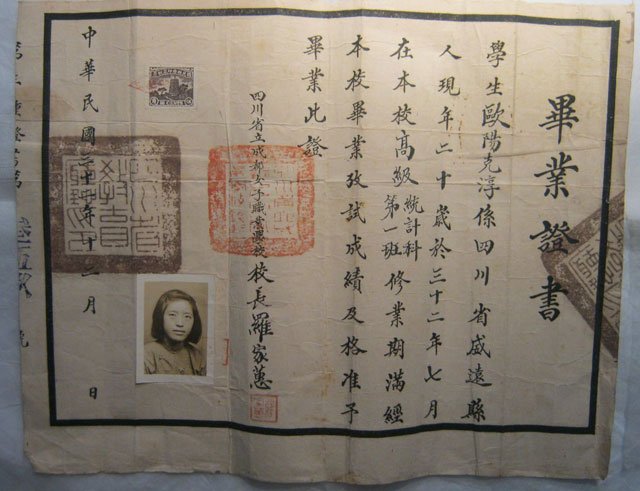 畢業證書
學生歐陽克淳係四川省威遠縣
人現年二十歲於三十二年七月
在本校高級統計科第一班修業期滿經
本校畢業攷試成績及格准予
畢業此證
四川省立成都女子職業學校校長羅家蕙
中華民國三十年十二月 日